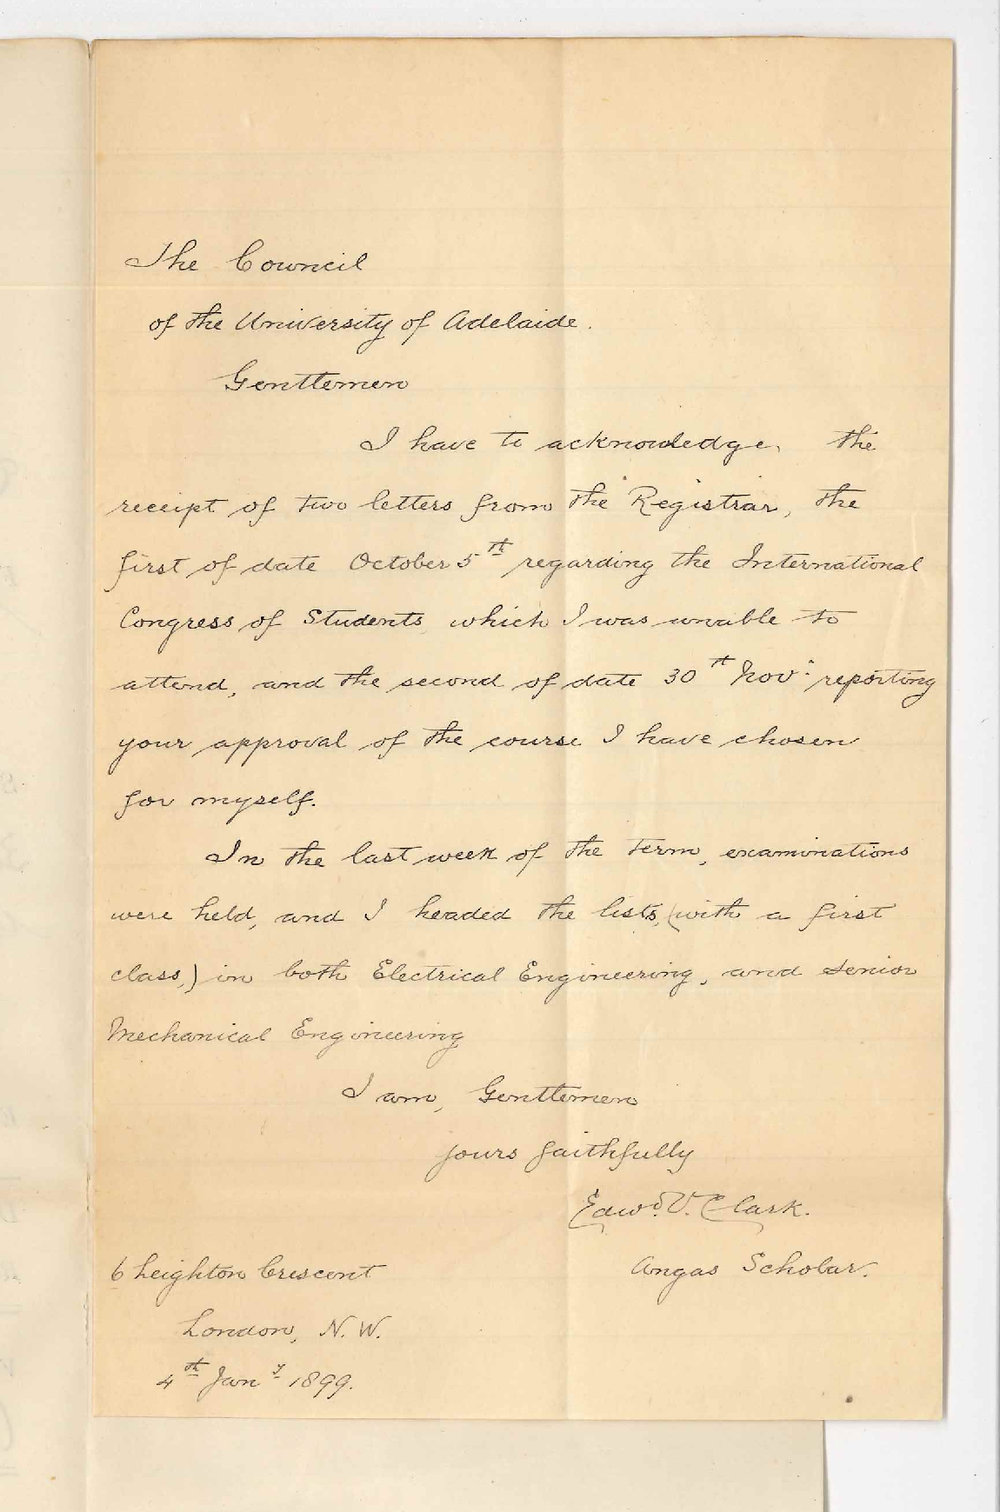 The Council
of the University of Adelaide.
Gentlemen
I have to acknowledge, the
receipt of two letters from the Registrar, the
first of date October 5th regarding the International
Congress of Students which I was unable to
attend, and the second of date 30th Nov. reporting
your approval of the course I have chosen
for myself.
In the last week of the term, examinations
were held, and I headed the lists, (with a first
class,) in both Electrical Engineering, and Senior
Mechanical Engineering
I am, Gentlemen
yours faithfully
Edwd. V. Clark.
Angas Scholar.
6 Leighton Crescent
London, N.W.
4th Jany 1899.